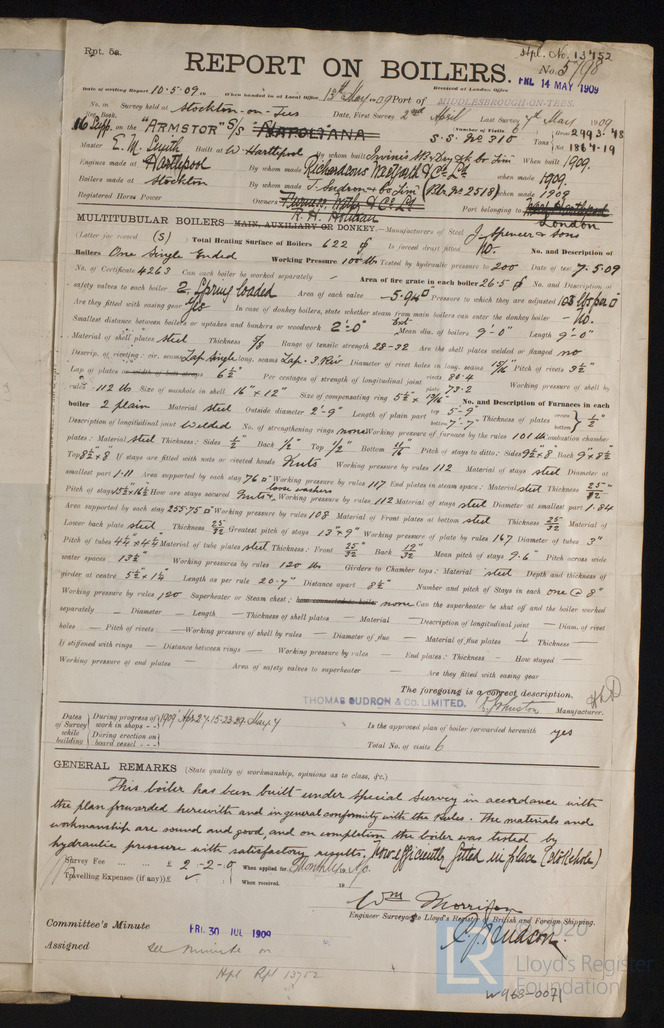 Rpt. 5a.
Hpl. No. 13752
REPORT ON BOILERS.
No. 57198
FRI. 14 MAY 1909
Date of writing Report 10.5.09 When handed in at Local Office 13th May 1909 Port of MIDDLESBROUGH-ON-TEES.
Received at London Office
No. in Survey held at Stockton-on-Tees Date, First Survey 2nd April Last Survey 7th May 1909
Reg. Book. (Number of Visits 6)
16 Supp. on the "ARMSTOR" S/S NAPOLITANA S.S. No 310 Tons Gross 2993.48
Net 1864.19
Master E. M. Smith Built at W. Hartlepool By whom built Irvine's When built 1909.
Engines made at Hartlepool By whom made Richardsons Westgarth & Co. Ld when made 1909.
Boilers made at Stockton By whom made T. Sudron & Co Lim (Blr. No 2518) when made 1909
Registered Horse Power Owners Furness Withy & Co. Ld Port belonging to West Hartlepool
R. H. Holman London
MULTITUBULAR BOILERS MAIN, AUXILIARY OR DONKEY.—Manufacturers of Steel J. Spencer & Sons
(Letter for record (S) ) Total Heating Surface of Boilers 622 Is forced draft fitted No. No. and Description of
Boilers One Single Ended Working Pressure 100 lbs Tested by hydraulic pressure to 200 Date of test 7.5.09
No. of Certificate 4263 Can each boiler be worked separately — Area of fire grate in each boiler 26.5 No. and Description of
safety valves to each boiler 2. Spring loaded Area of each valve 5.94 Pressure to which they are adjusted 103 lbs per
Are they fitted with easing gear Yes In case of donkey boilers, state whether steam from main boilers can enter the donkey boiler - No.
Smallest distance between boilers or uptakes and bunkers or woodwork 2'-0" Mean dia. of boilers 9'-0" Length 9'-0"
Material of shell plates steel Thickness 5/8 Range of tensile strength 28-32 Are the shell plates welded or flanged no
Descrip. of riveting: cir. seams Lap single long. seams Lap. 3 Riv Diameter of rivet holes in long. seams 15/16 Pitch of rivets 3 1/2"
Lap of plates or width of butt straps 6 1/2" Per centages of strength of longitudinal joint rivets 80.4 Working pressure of shell by
plate 73.2
rules 112 lbs Size of manhole in shell 16" x 12" Size of compensating ring 5 1/2 x 13/16" No. and Description of Furnaces in each
boiler 2 plain Material steel Outside diameter 2'-9" Length of plain part top 5'-9" bottom 7'-7" Thickness of plates crown bottom 1/2"
Description of longitudinal joint Welded No. of strengthening rings none Working pressure of furnace by the rules 101 lbs Combustion chamber
plates: Material steel Thickness: Sides 1/2" Back 1/2" Top 1/2" Bottom 11/16" Pitch of stays to ditto: Sides 9 1/2" x 8" Back 9" x 8 1/2"
Top 8 1/2" x 8" If stays are fitted with nuts or riveted heads Nuts Working pressure by rules 112 Material of stays steel Diameter at
smallest part 1.11 Area supported by each stay 76 Working pressure by rules 117 End plates in steam space: Material steel Thickness 25/32"
Pitch of stays 15 1/2" x 16 1/2" How are stays secured Nuts & loose washers Working pressure by rules 112 Material of stays steel Diameter at smallest part 1.84
Area supported by each stay 255.75 Working pressure by rules 108 Material of Front plates at bottom steel Thickness 25/32" Material of
Lower back plate steel Thickness 25/32 Greatest pitch of stays 13" x 9" Working pressure of plate by rules 167 Diameter of tubes 3"
Pitch of tubes 4 1/4" x 4 1/4" Material of tube plates steel Thickness: Front 25/32" Back 19/32" Mean pitch of stays 9.6" Pitch across wide
water spaces 13 1/2" Working pressures by rules 120 lbs Girders to Chamber tops: Material steel Depth and thickness of
girder at centre 5 1/2" x 1 1/4" Length as per rule 20.7" Distance apart 8 1/2" Number and pitch of Stays in each one @ 8"
Working pressure by rules 120 Superheater or Steam chest; how connected to boiler none Can the superheater be shut off and the boiler worked
separately — Diameter — Length — Thickness of shell plates — Material — Description of longitudinal joint — Diam. of rivet
holes — Pitch of rivets — Working pressure of shell by rules — Diameter of flue — Material of flue plates — Thickness —
If stiffened with rings — Distance between rings — Working pressure by rules — End plates: Thickness — How stayed —
Working pressure of end plates — Area of safety valves to superheater — Are they fitted with easing gear
The foregoing is a correct description,
THOMAS SUDRON & CO. LIMITED. Manufacturer.
Dates of Survey while building
During progress of work in shops - - 1909 Apr. 2.7.15.23.29. May. 7 Is the approved plan of boiler forwarded herewith yes
During erection on board vessel - - - Total No. of visits 6
GENERAL REMARKS (State quality of workmanship, opinions as to class, &c.)
This boiler has been built under special survey in accordance with
the plan forwarded herewith and in general conformity with the Rules. The materials and
workmanship are sound and good, and on completion the boiler was tested by
hydraulic pressure with satisfactory results. Now efficiently fitted in place (stokehole)
Survey Fee ... ... £ 2-2-0 When applied for, Monthly a/c.
Travelling Expenses (if any) £ When received, 19
Wm Morrison
Engineer Surveyor to Lloyd's Register of British and Foreign Shipping.
C. J. Hudson.
Committee's Minute FRI. 30 JUL 1909
Assigned see minute on
Hpl Rpt 13752
© 2020
LR
Lloyd's Register
Foundation
W963-0071